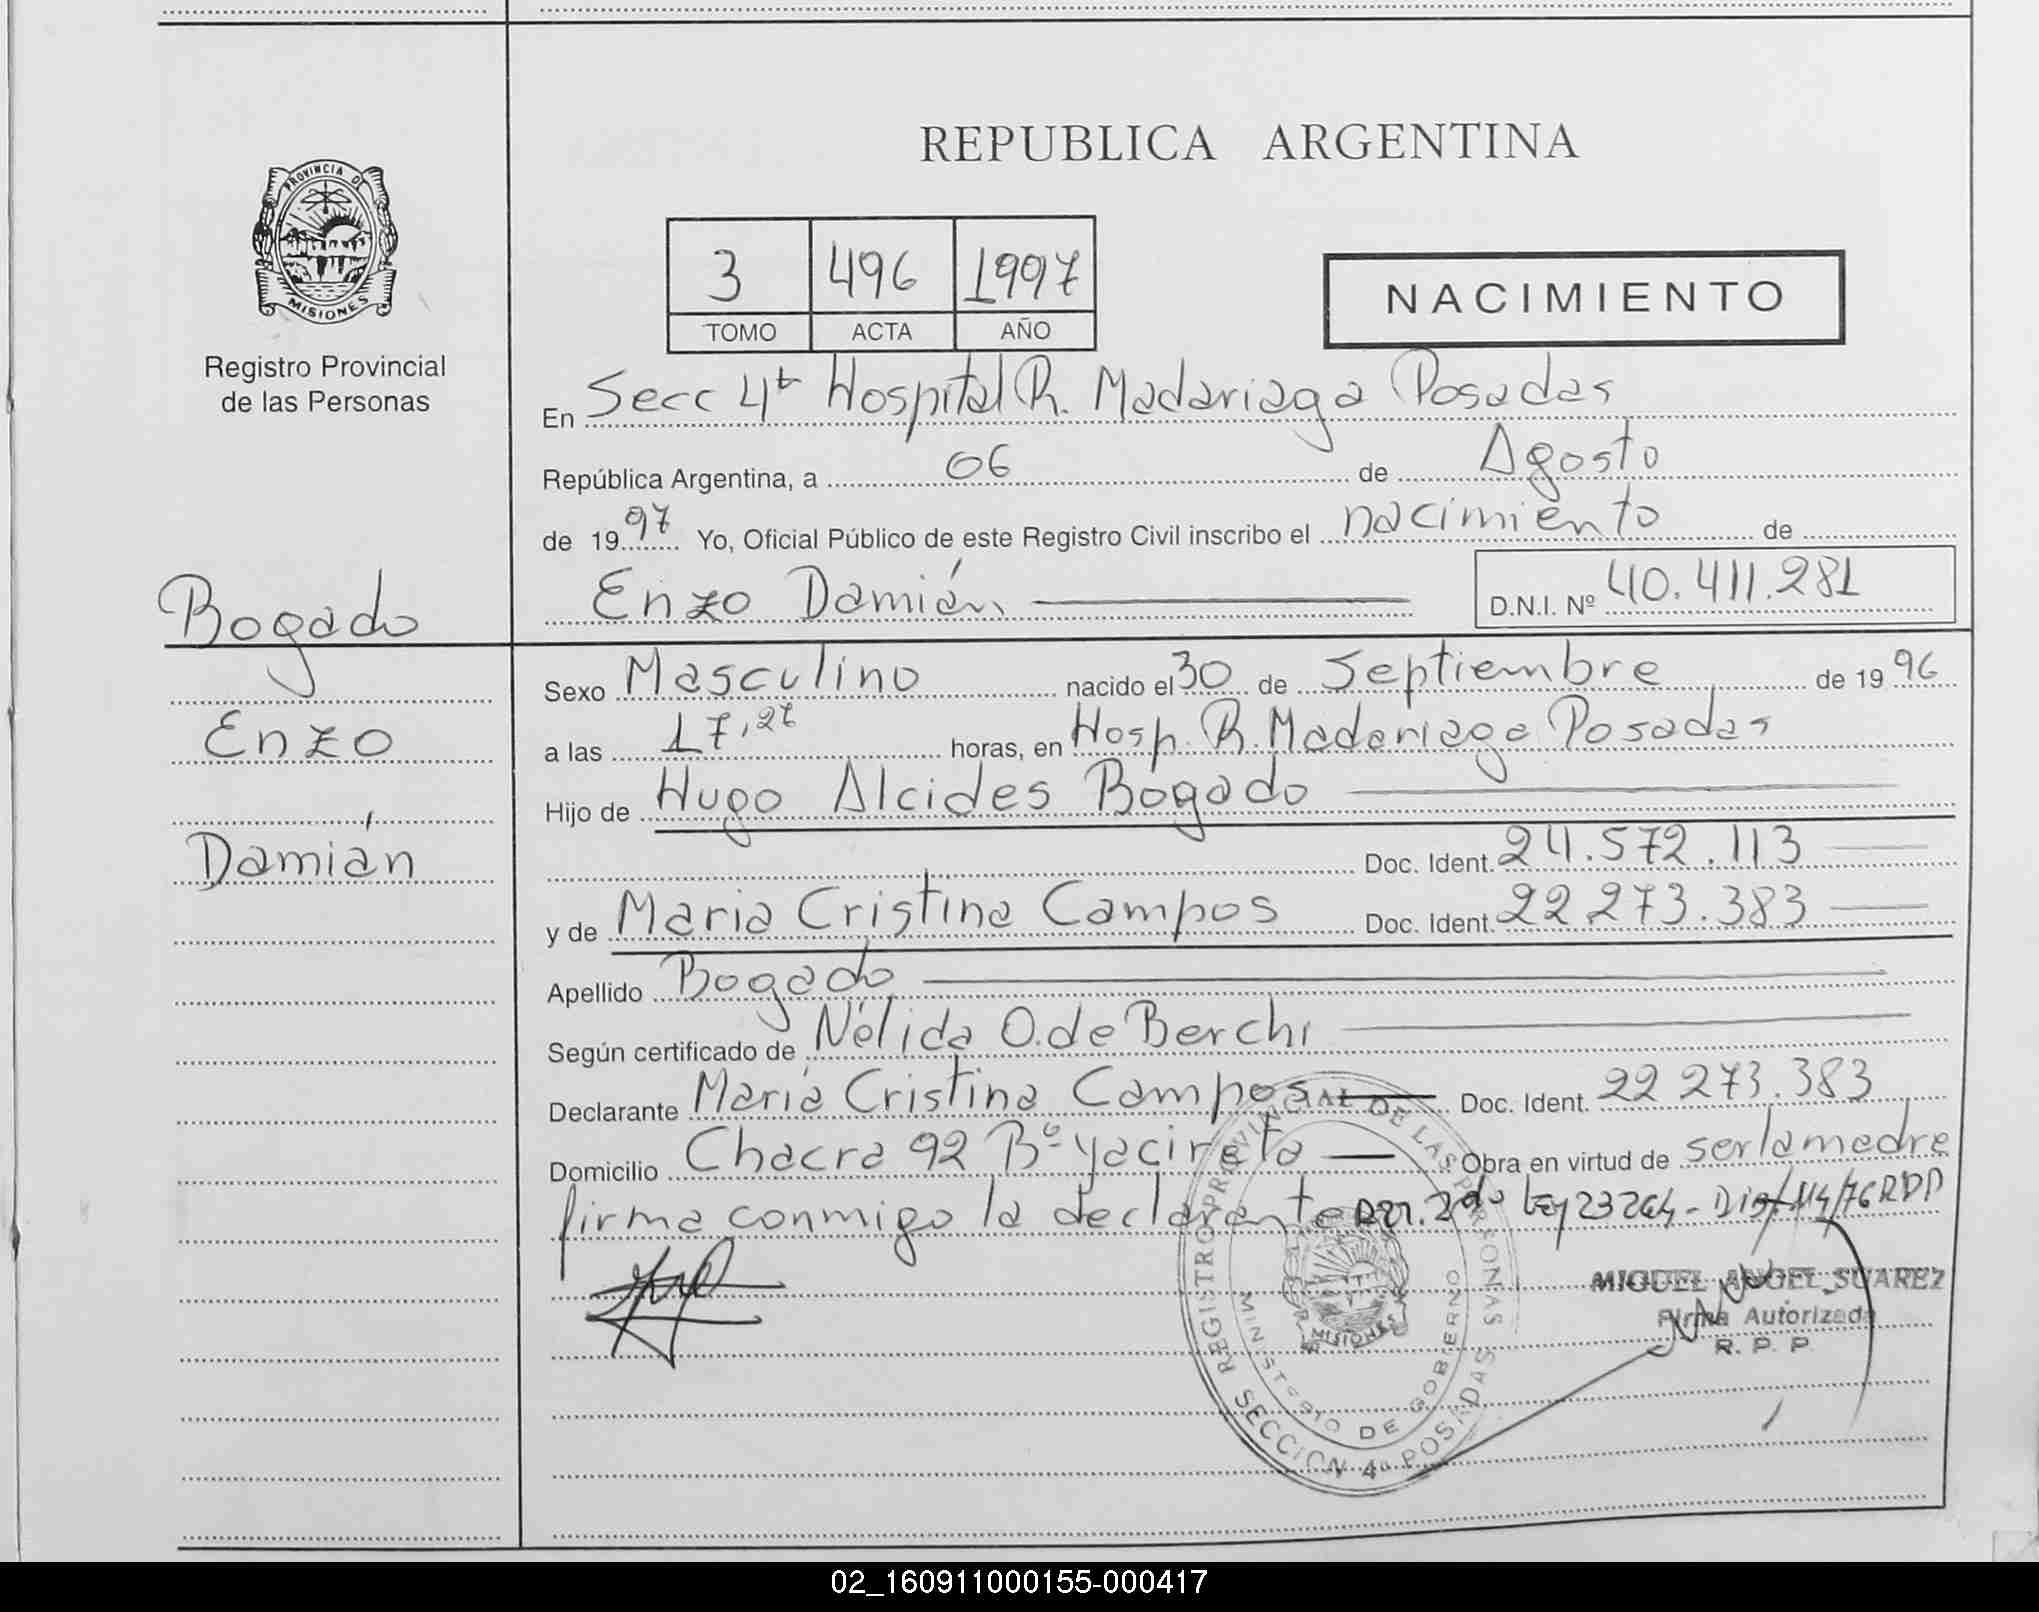 REPUBLICA ARGENTINA
PROVINCIA DE
MISIONES
Registro Provincial
de las Personas
3 496 1997
TOMO ACTA AÑO
NACIMIENTO
En Secc 4ta Hospital R. Madariaga Posadas
República Argentina, a 06 de Agosto
de 1997 Yo, Oficial Público de este Registro Civil inscribo el nacimiento de
Enzo Damián D.N.I. Nº 40.411.281
Bogado
Enzo
Damián
Sexo Masculino nacido el 30 de Septiembre de 1996
a las 17,27 horas, en Hosp. R. Madariaga Posadas
Hijo de Hugo Alcides Bogado
Doc. Ident. 24.572.113
y de Maria Cristina Campos Doc. Ident. 22.273.383
Apellido Bogado
Según certificado de Nélida O. de Berchi
Declarante María Cristina Campos Doc. Ident. 22 273.383
Domicilio Chacra 92 Bº Yacireta Obra en virtud de ser la madre
firma conmigo la declarante Art. 2do Ley 23264 - 114/76 RPP
REGISTRO PROVINCIAL DE LAS PERSONAS
MINISTERIO DE GOBIERNO
MISIONES
SECCION 4a POSADAS
MIGUEL ANGEL SUAREZ
Firma Autorizada
R. P. P.
02_160911000155-000417